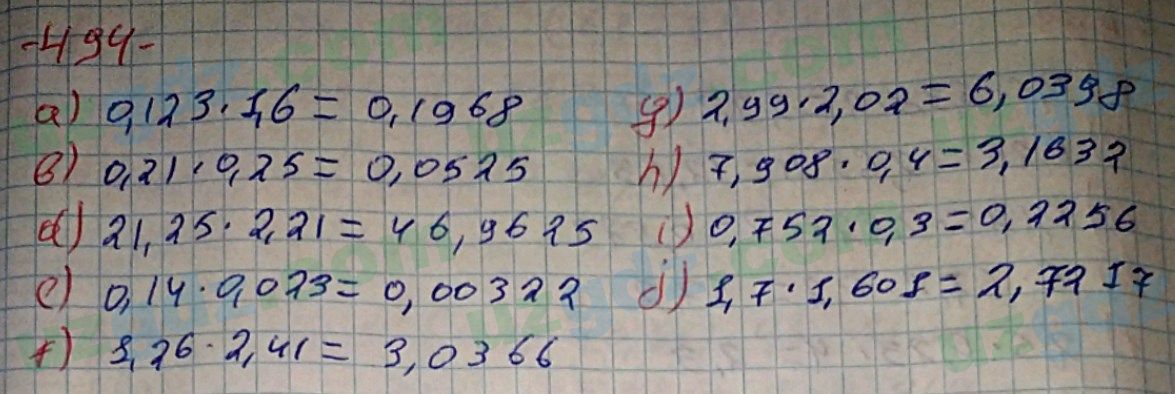 -494-
a) 0,123·1,6 = 0,1968
b) 0,21·0,25 = 0,0525
d) 21,25·2,21 = 46,9625
e) 0,14·0,023 = 0,00322
f) 1,26·2,41 = 3,0366
g) 2,99·2,02 = 6,0398
h) 7,908·0,4 = 3,1632
i) 0,752·0,3 = 0,2256
j) 1,7·1,601 = 2,7217